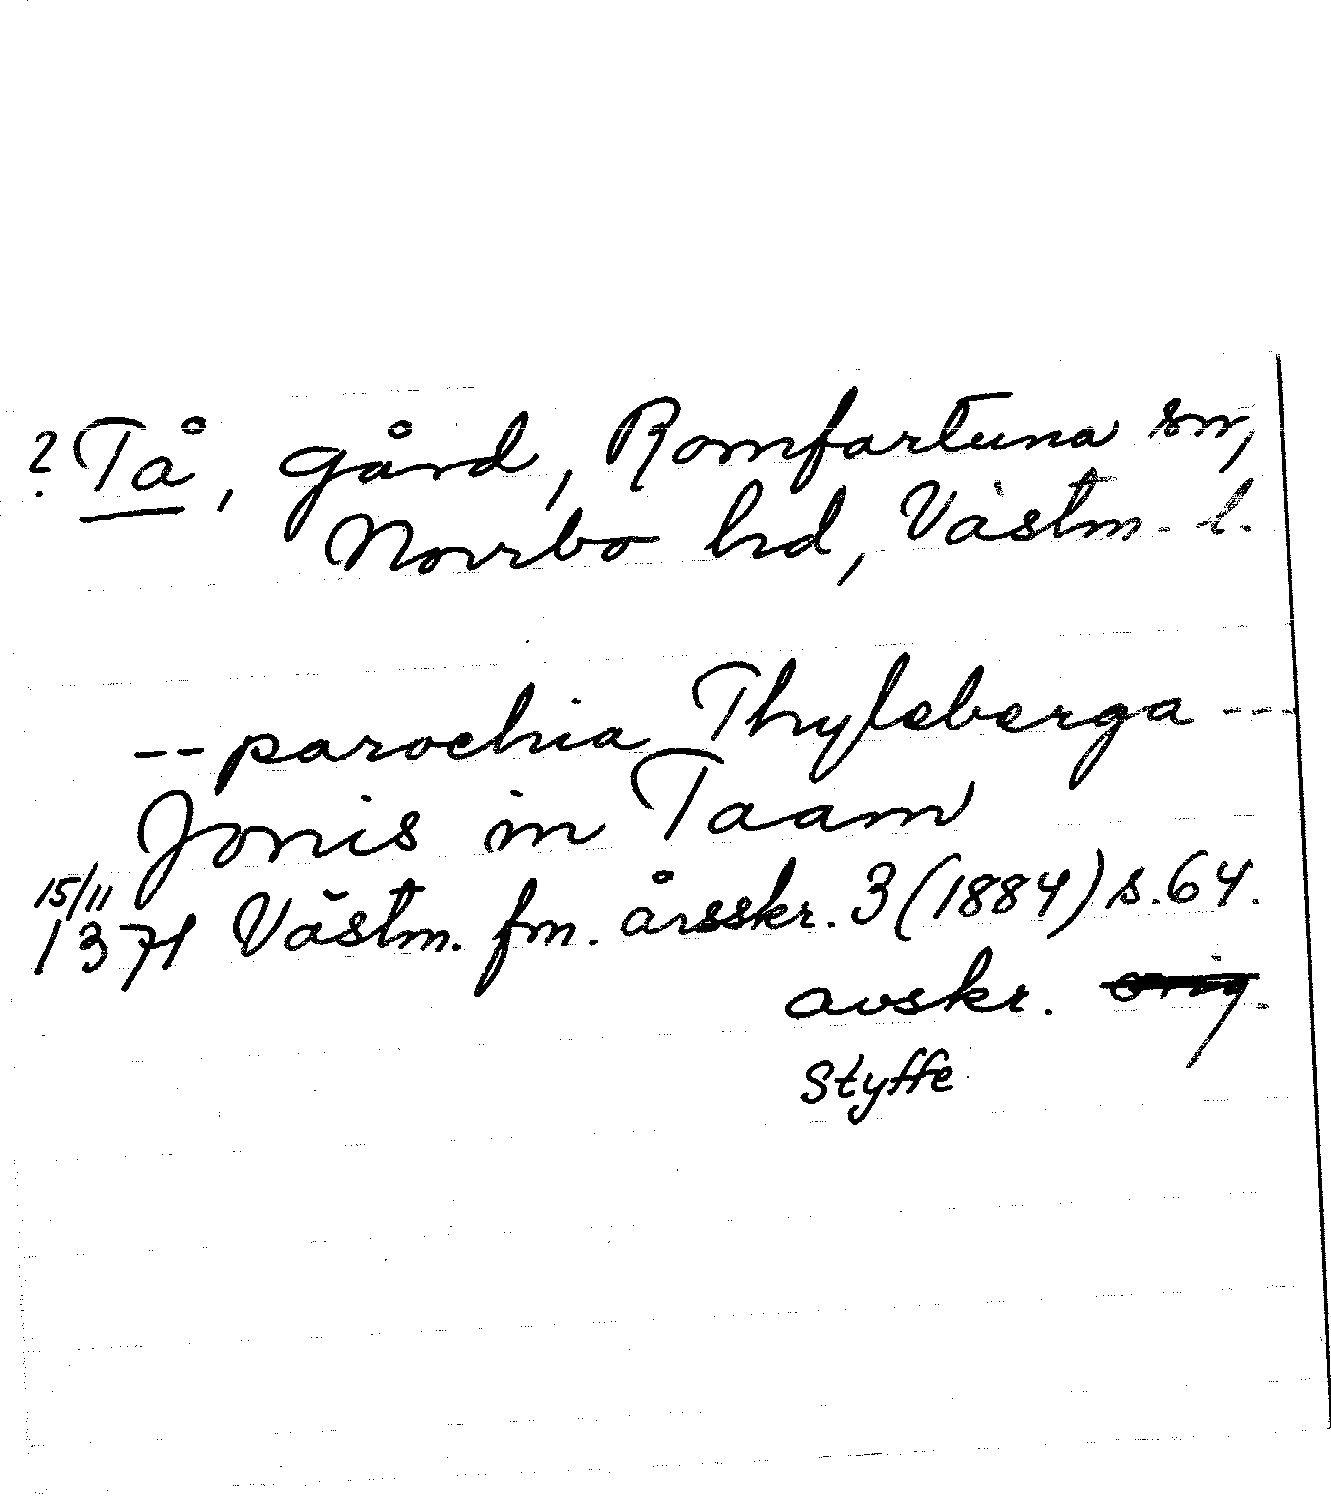 ? Tå, gård, Romfartuna sn,
Norrbo hrd, Västm. l.
-- parochia Thyleberga ---
Jönis in Taam
15/11
1371 Västm. fm. årsskr. 3 (1884) s. 64.
avskr. orig.
Styffe